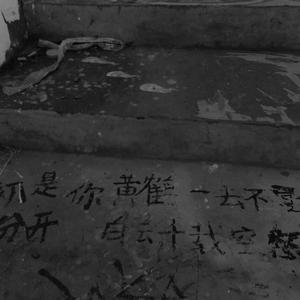 切是你 黄鹤一去不
分开 白云千载空